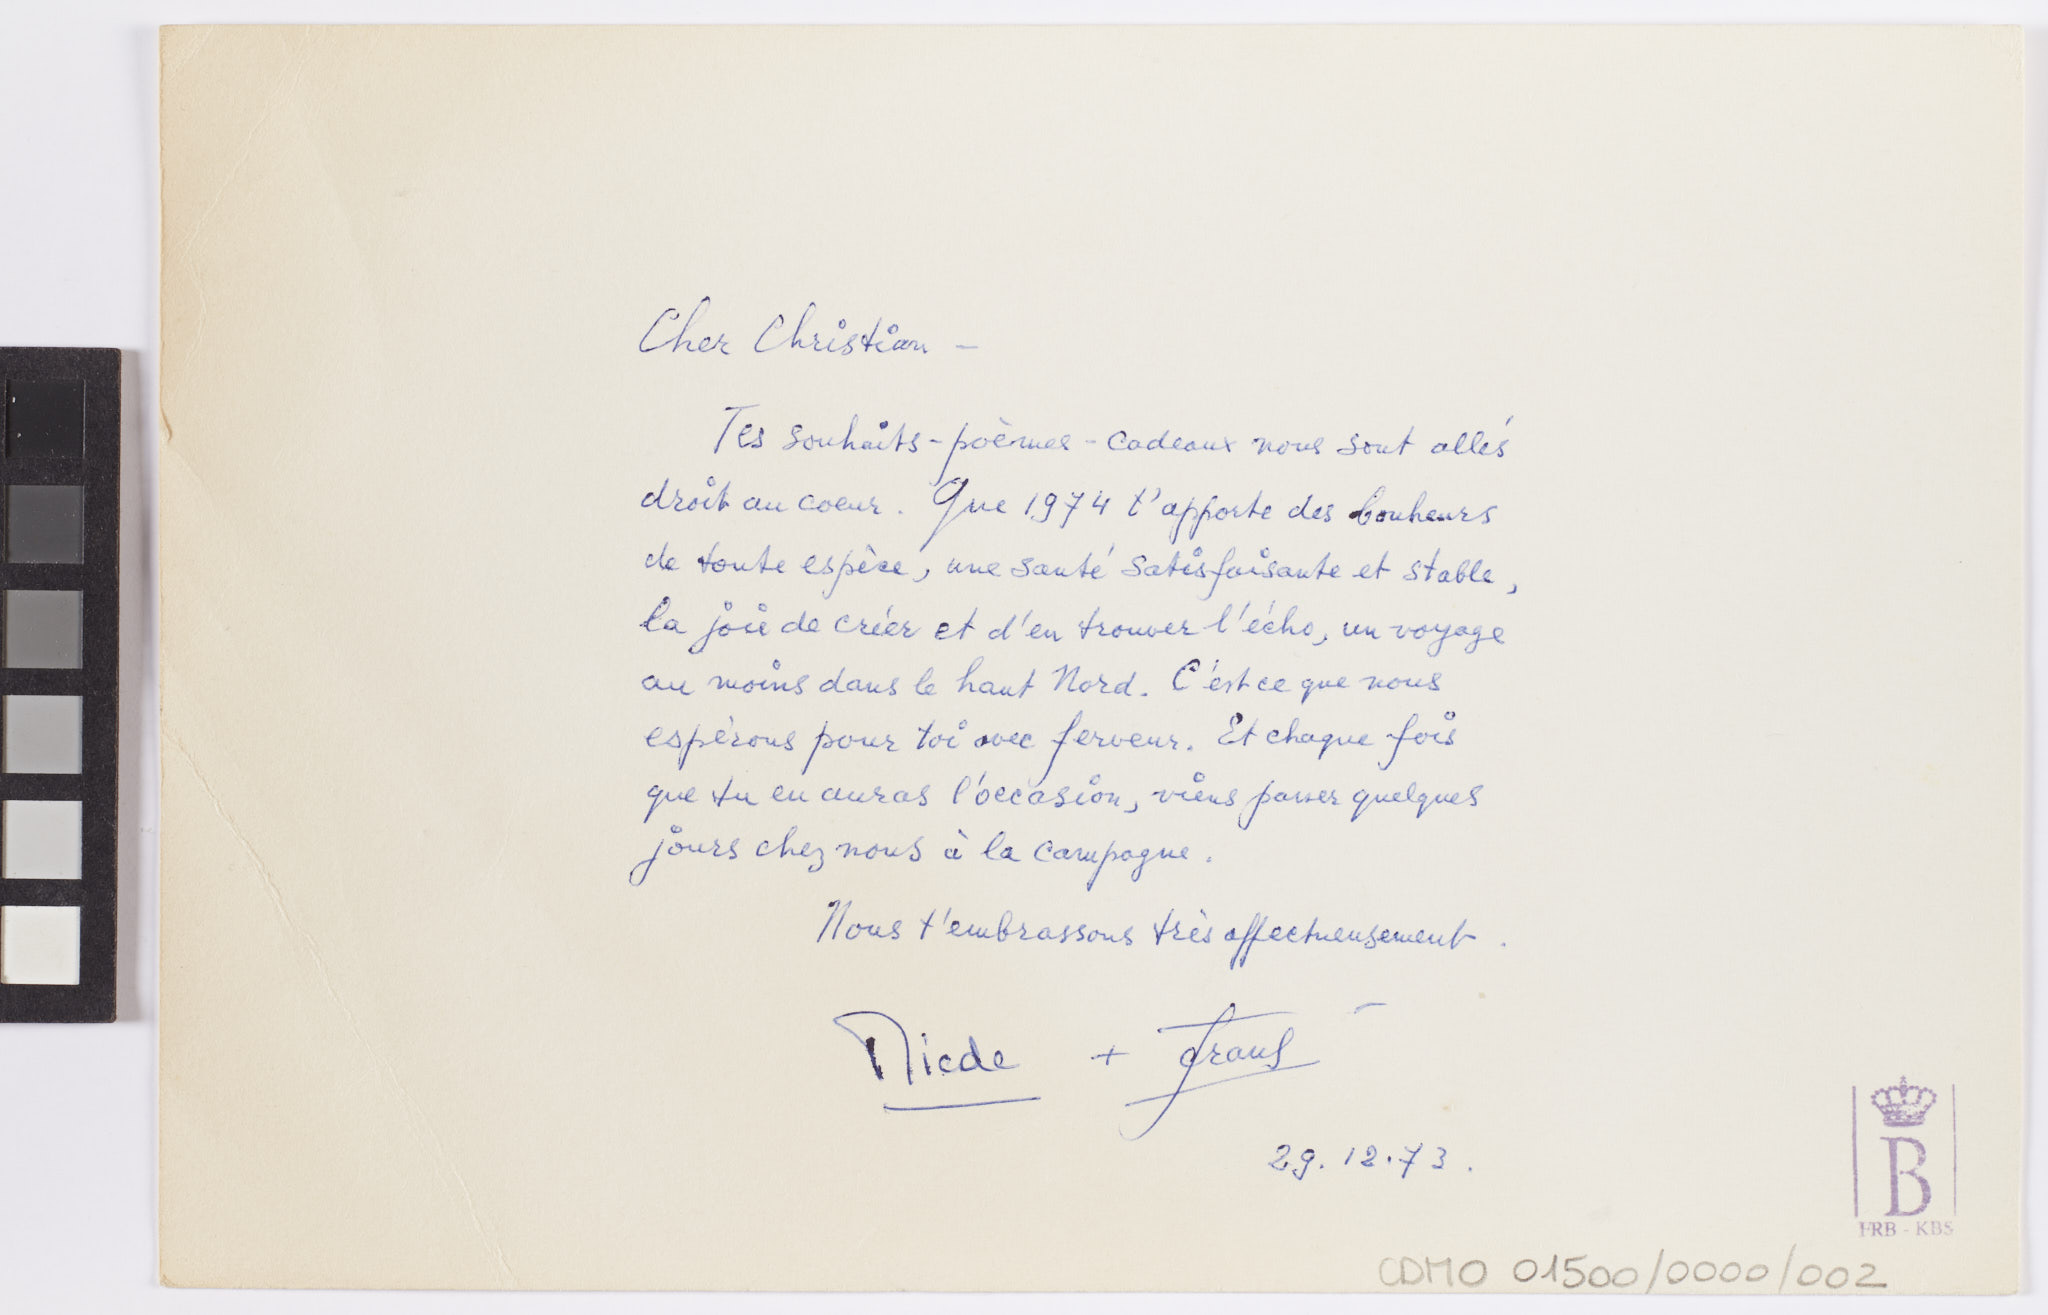 Cher Christian –
Tes souhaits-poèmes-cadeaux nous sont allés
droit au coeur. Que 1974 t'apporte des bonheurs
de toute espèce, une santé satisfaisante et stable,
la joie de créer et d'en trouver l'écho, un voyage
au moins dans le haut Nord. C'est ce que nous
espèrons pour toi avec ferveur. Et chaque fois
que tu en auras l'occasion, viens passer quelques
jours chez nous à la campagne.
Nous t'embrassons très affectueusement.
+ Frans
29.12.73.
B
FRB - KBS
CDMO 01500/0000/002